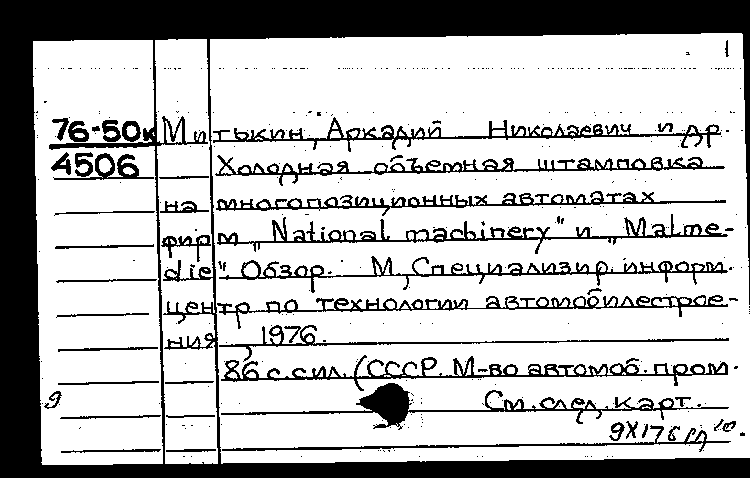 1
76-50к Митькин, Аркадий Николаевич и др.
4506 Холодная объемная штамповка
на многопозиционных автоматах
фирм „National machinery" и „Malme-
die". Обзор. М., Специализир. информ.
центр по технологии автомобилестрое-
ния, 1976.
86 с. с ил. (СССР. М-во автомоб. пром.
См. след. карт.
9
9X176